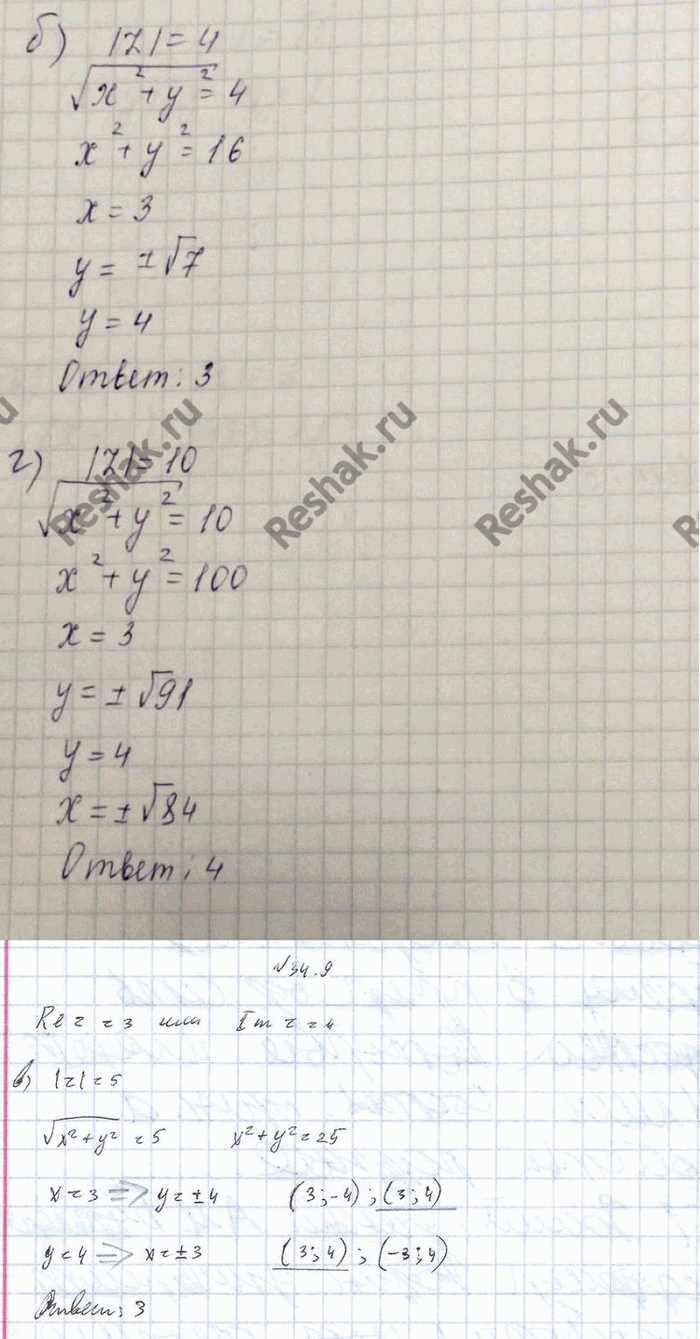 б) |Z| = 4
√x² + y² = 4
x² + y² = 16
x = 3
y = ±√7
y = 4
Ответ: 3
г) |Z| = 10
√x² + y² = 10
x² + y² = 100
x = 3
y = ±√91
y = 4
x = ±√84
Ответ: 4
Reshak.ru Reshak.ru Reshak.ru
№34.9
Re z = 3 или Im z = 4
в) |z| = 5
√x²+y² = 5 x²+y²=25
x = 3 => y = ±4 (3;-4) ; (3;4)
y = 4 => x = ±3 (3;4) ; (-3;4)
Ответ: 3